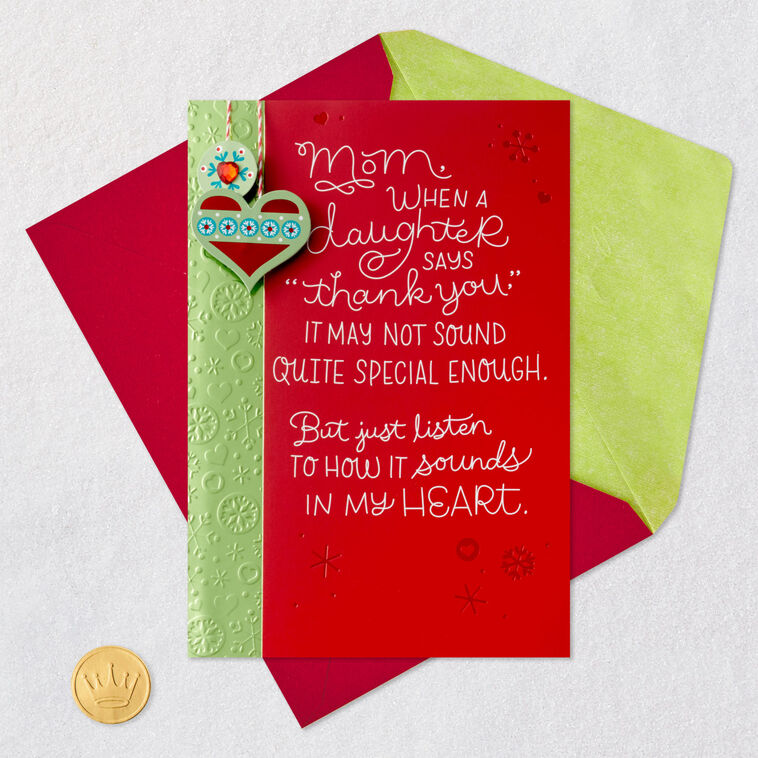 Mom,
WHEN A
daughter
SAYS
“thank you,”
IT MAY NOT SOUND
QUITE SPECIAL ENOUGH.
But just listen
TO HOW IT sounds
IN MY HEART.